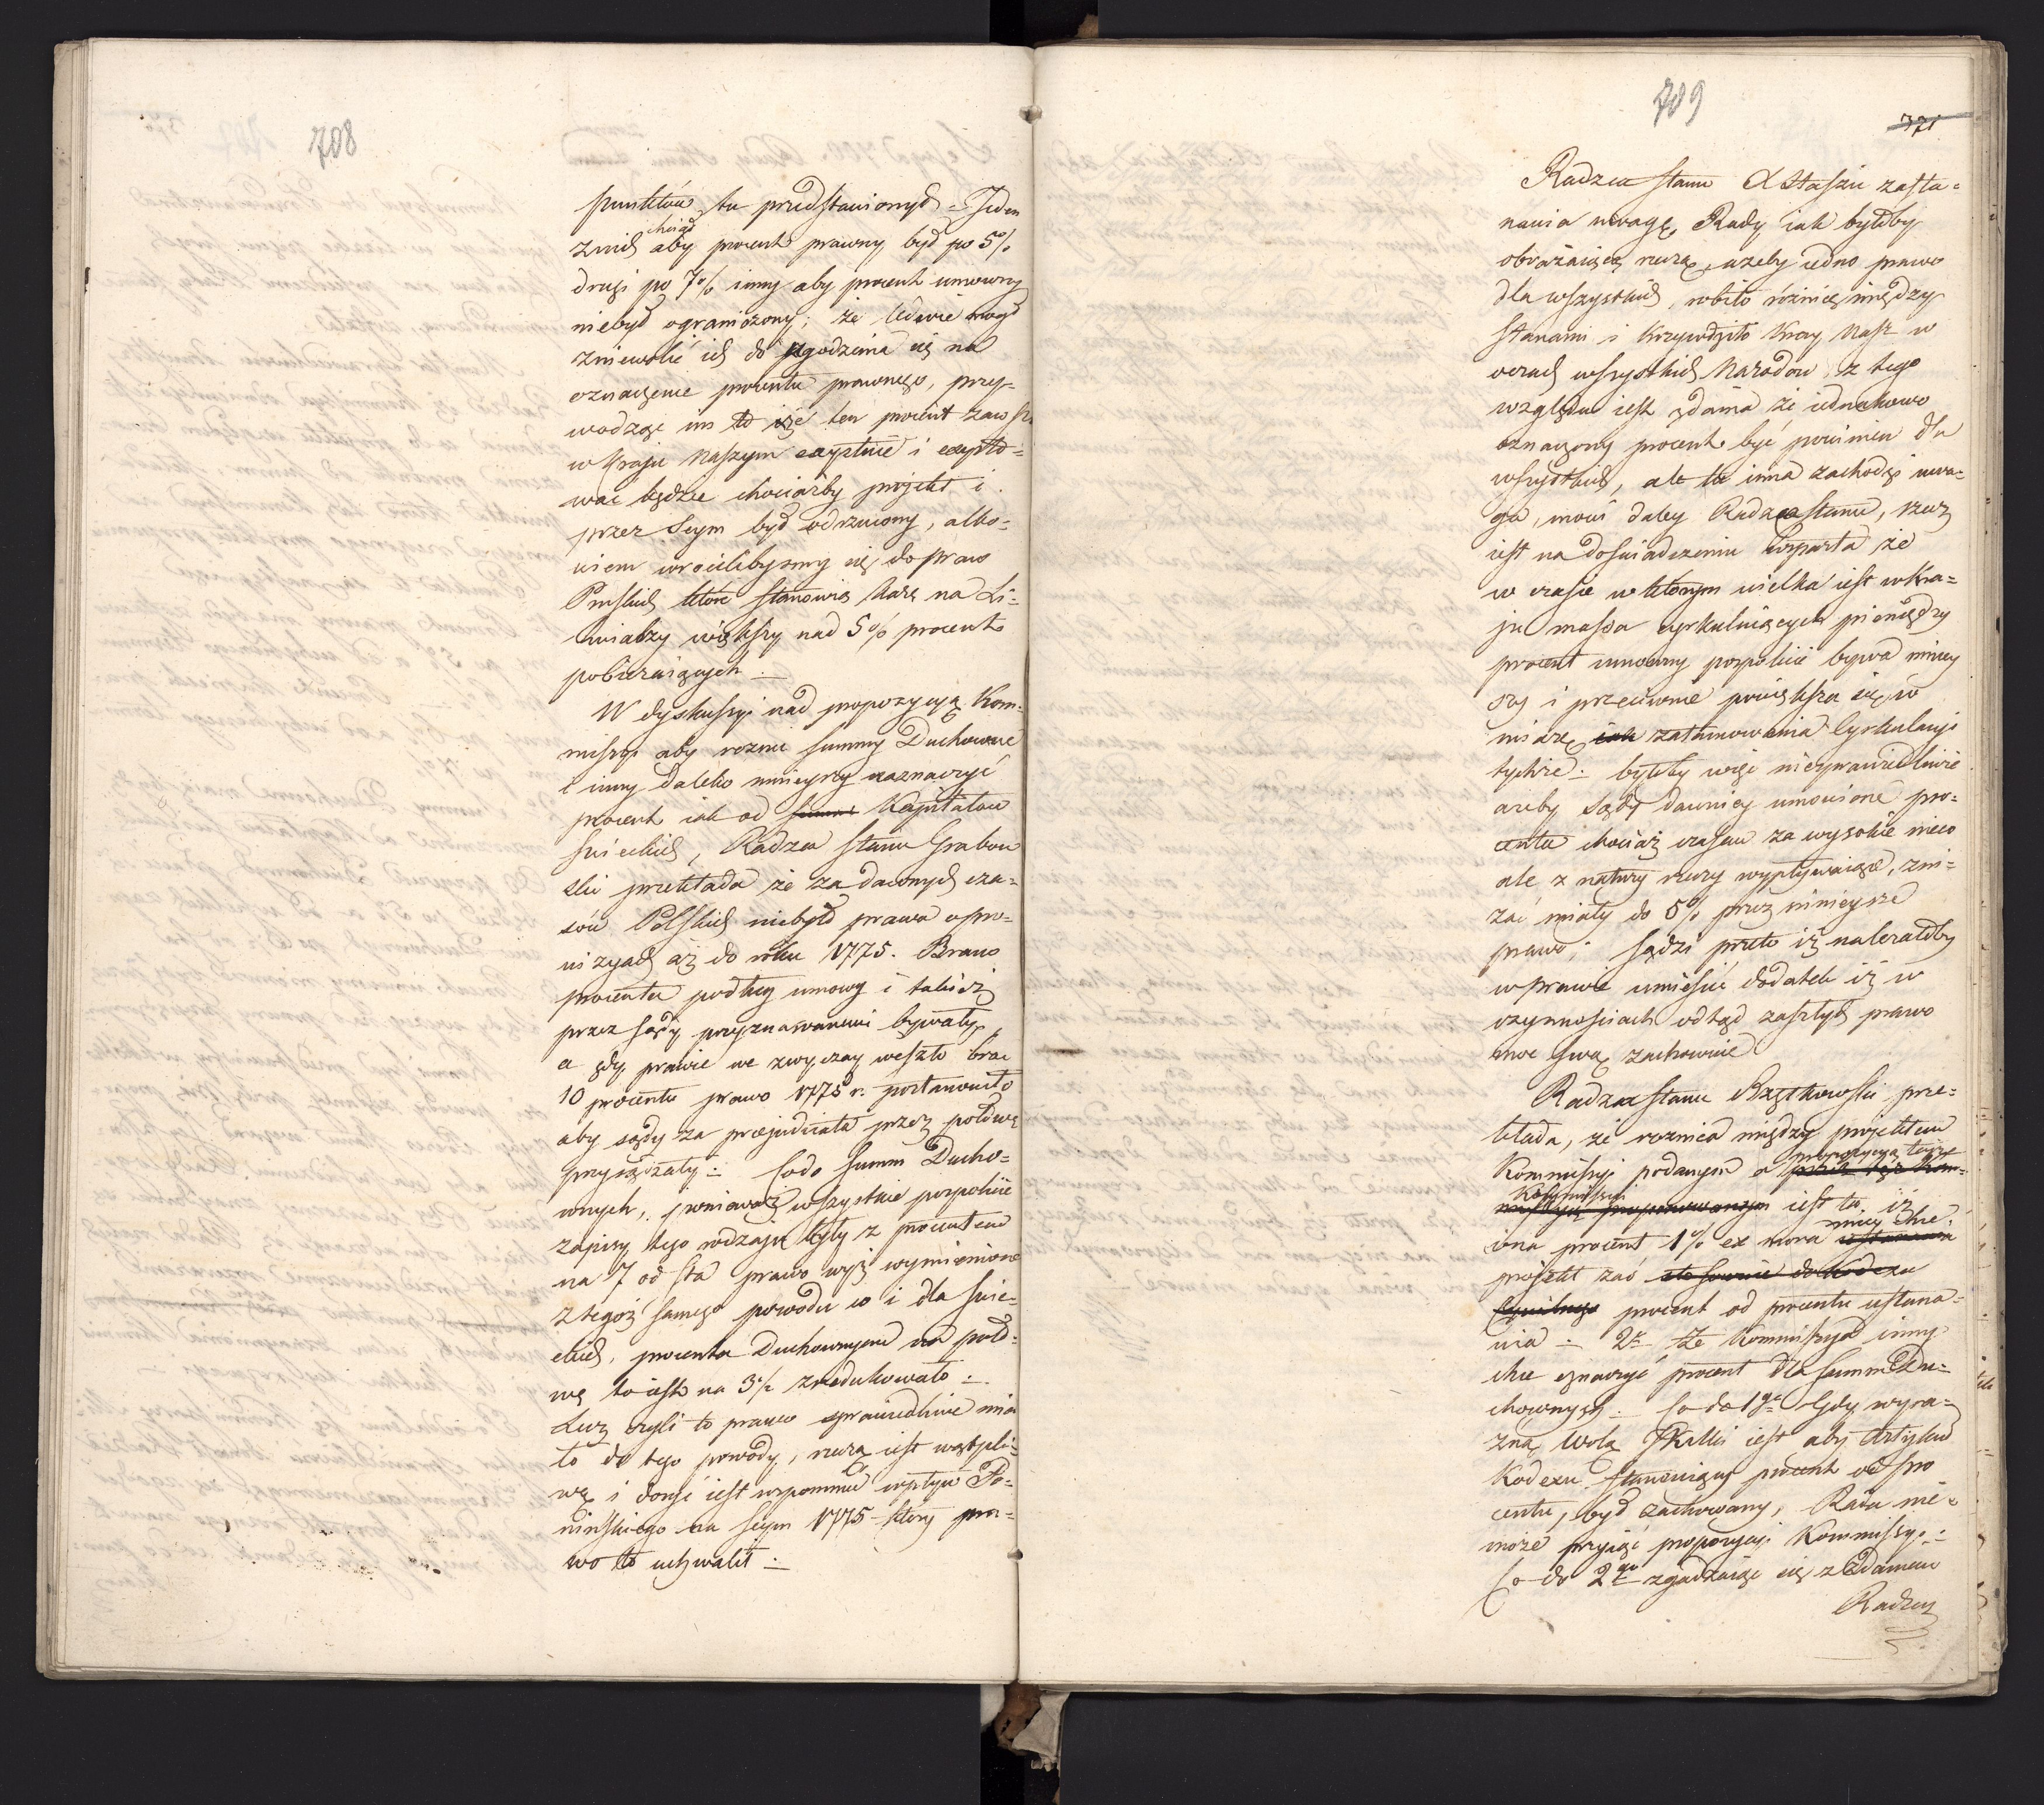 708
punktów tu przedstawionych - Jeden
z nich chciał aby procent prawny był po 5%
drugi po 7% inny aby procent umowny
niebył ograniczony; że ledwie mógł
zniewolić ich do zgodzenia się na
oznaczenie procentu prawnego, przy=
wodząc im to iże ten procent zawsze
w kraju naszym exystuie i exysto=
wać będzie chociażby projekt i
przez Seym był odrzucony, albo=
wiem wrócilibyśmy się do praw
Pruskich które stanowią karę na Li=
chwiarzy większy nad 5% procent
pobieraiących.
W dyskussyi nad propozycyą Kom=
missyi aby roznić summy Duchowne
i inny daleko mnieyszy naznaczyć
procent iak od summ Kapitałów
Świeckich, Radzca Stanu Grabow
ski przekłada że za dawnych cza=
sów Polskich niebyło prawa o pro=
wizyach aż do roku 1775. Brano
procenta podług umowy i takież
przez sądy przyznawanemi bywały,
a gdy prawie we zwyczay weszło brać
10 procentu prawo 1775 r. postanowiło
aby sądy za praejudicata przez połowę
przysądzały: Co do summ Ducho=
wnych, ponieważ wszystkie pospolicie
zapisy tego rodzaju były z procentem
na 7 od sta prawo wyż wymienione
z tegoż samego powodu co i dla świe=
ckich, procenta Duchownym na poło=
wę to iest na 3½ zredukowało:
Lecz czyli to prawo sprawiedliwe mia
ło do tego powody, rzecz iest wątpli=
wą i dosyć iest wspomnieć wpływ Po=
nińskiego na Seym 1775 który pra=
wo to uchwalił:
709
371
Radzca Stanu X Staszic zasta=
nawia uwagę Rady iak byłoby
obrażaiącą rzeczą, ażeby iedno prawo
dla wszystkich, robiło różnicę między
stanami i krzywdziło Kray Nasz w
oczach wszystkich Narodów, z tego
względu iest zdania że iednakowo
oznaczony procent być powinien dla
wszystkich, ale tu inna zachodzi uwa=
ga, mówi daley Radzca Stanu, rzecz
iest na doświadczeniu wsparta że
w czasie w którym wielka iest w Kra=
ju massa cyrkuluiących pieniędzy
procent umowny pospolicie bywa mniey
szy i przeciwnie powiększa się w
miarę iak zatamowania Cyrkulacyi
tychże: byłoby więc niesprawiedliwie
ażeby sądy dawniey umówione pro=
centa chociaż czasem za wysokie nieco
ale z natury rzeczy wypływaiące, zni=
żać miały do 5% przez ninieysze
prawo; sądzi przeto iż należałoby
w prawie umieścić dodatek iż w
czynnościach odtąd zaszłych prawo
moc swą zachowuie
Radzca Stanu Bzątkowski prze=
kłada, że roznica między projektem
Kommissyi podanym a propozycyą teyże
Kommissyi iest to, iż
ona procent 1% ex mora mieć chce,
projekt zaś stosownie do Kodexu
Cywilnego procent od procentu ustana=
wia: 2re że Kommissya inny
chce oznaczyć procent dla summ Du=
chownych: Co do 1go Gdy wyra=
zną wolą JKMci iest aby Artykuł
Kodexu stanowiący procent od pro
centu, był zachowany, Rada nie=
może przyiąć propozycyi Kommissyi:
Co do 2go zgadzaiąc się z zdaniem
Radzcy